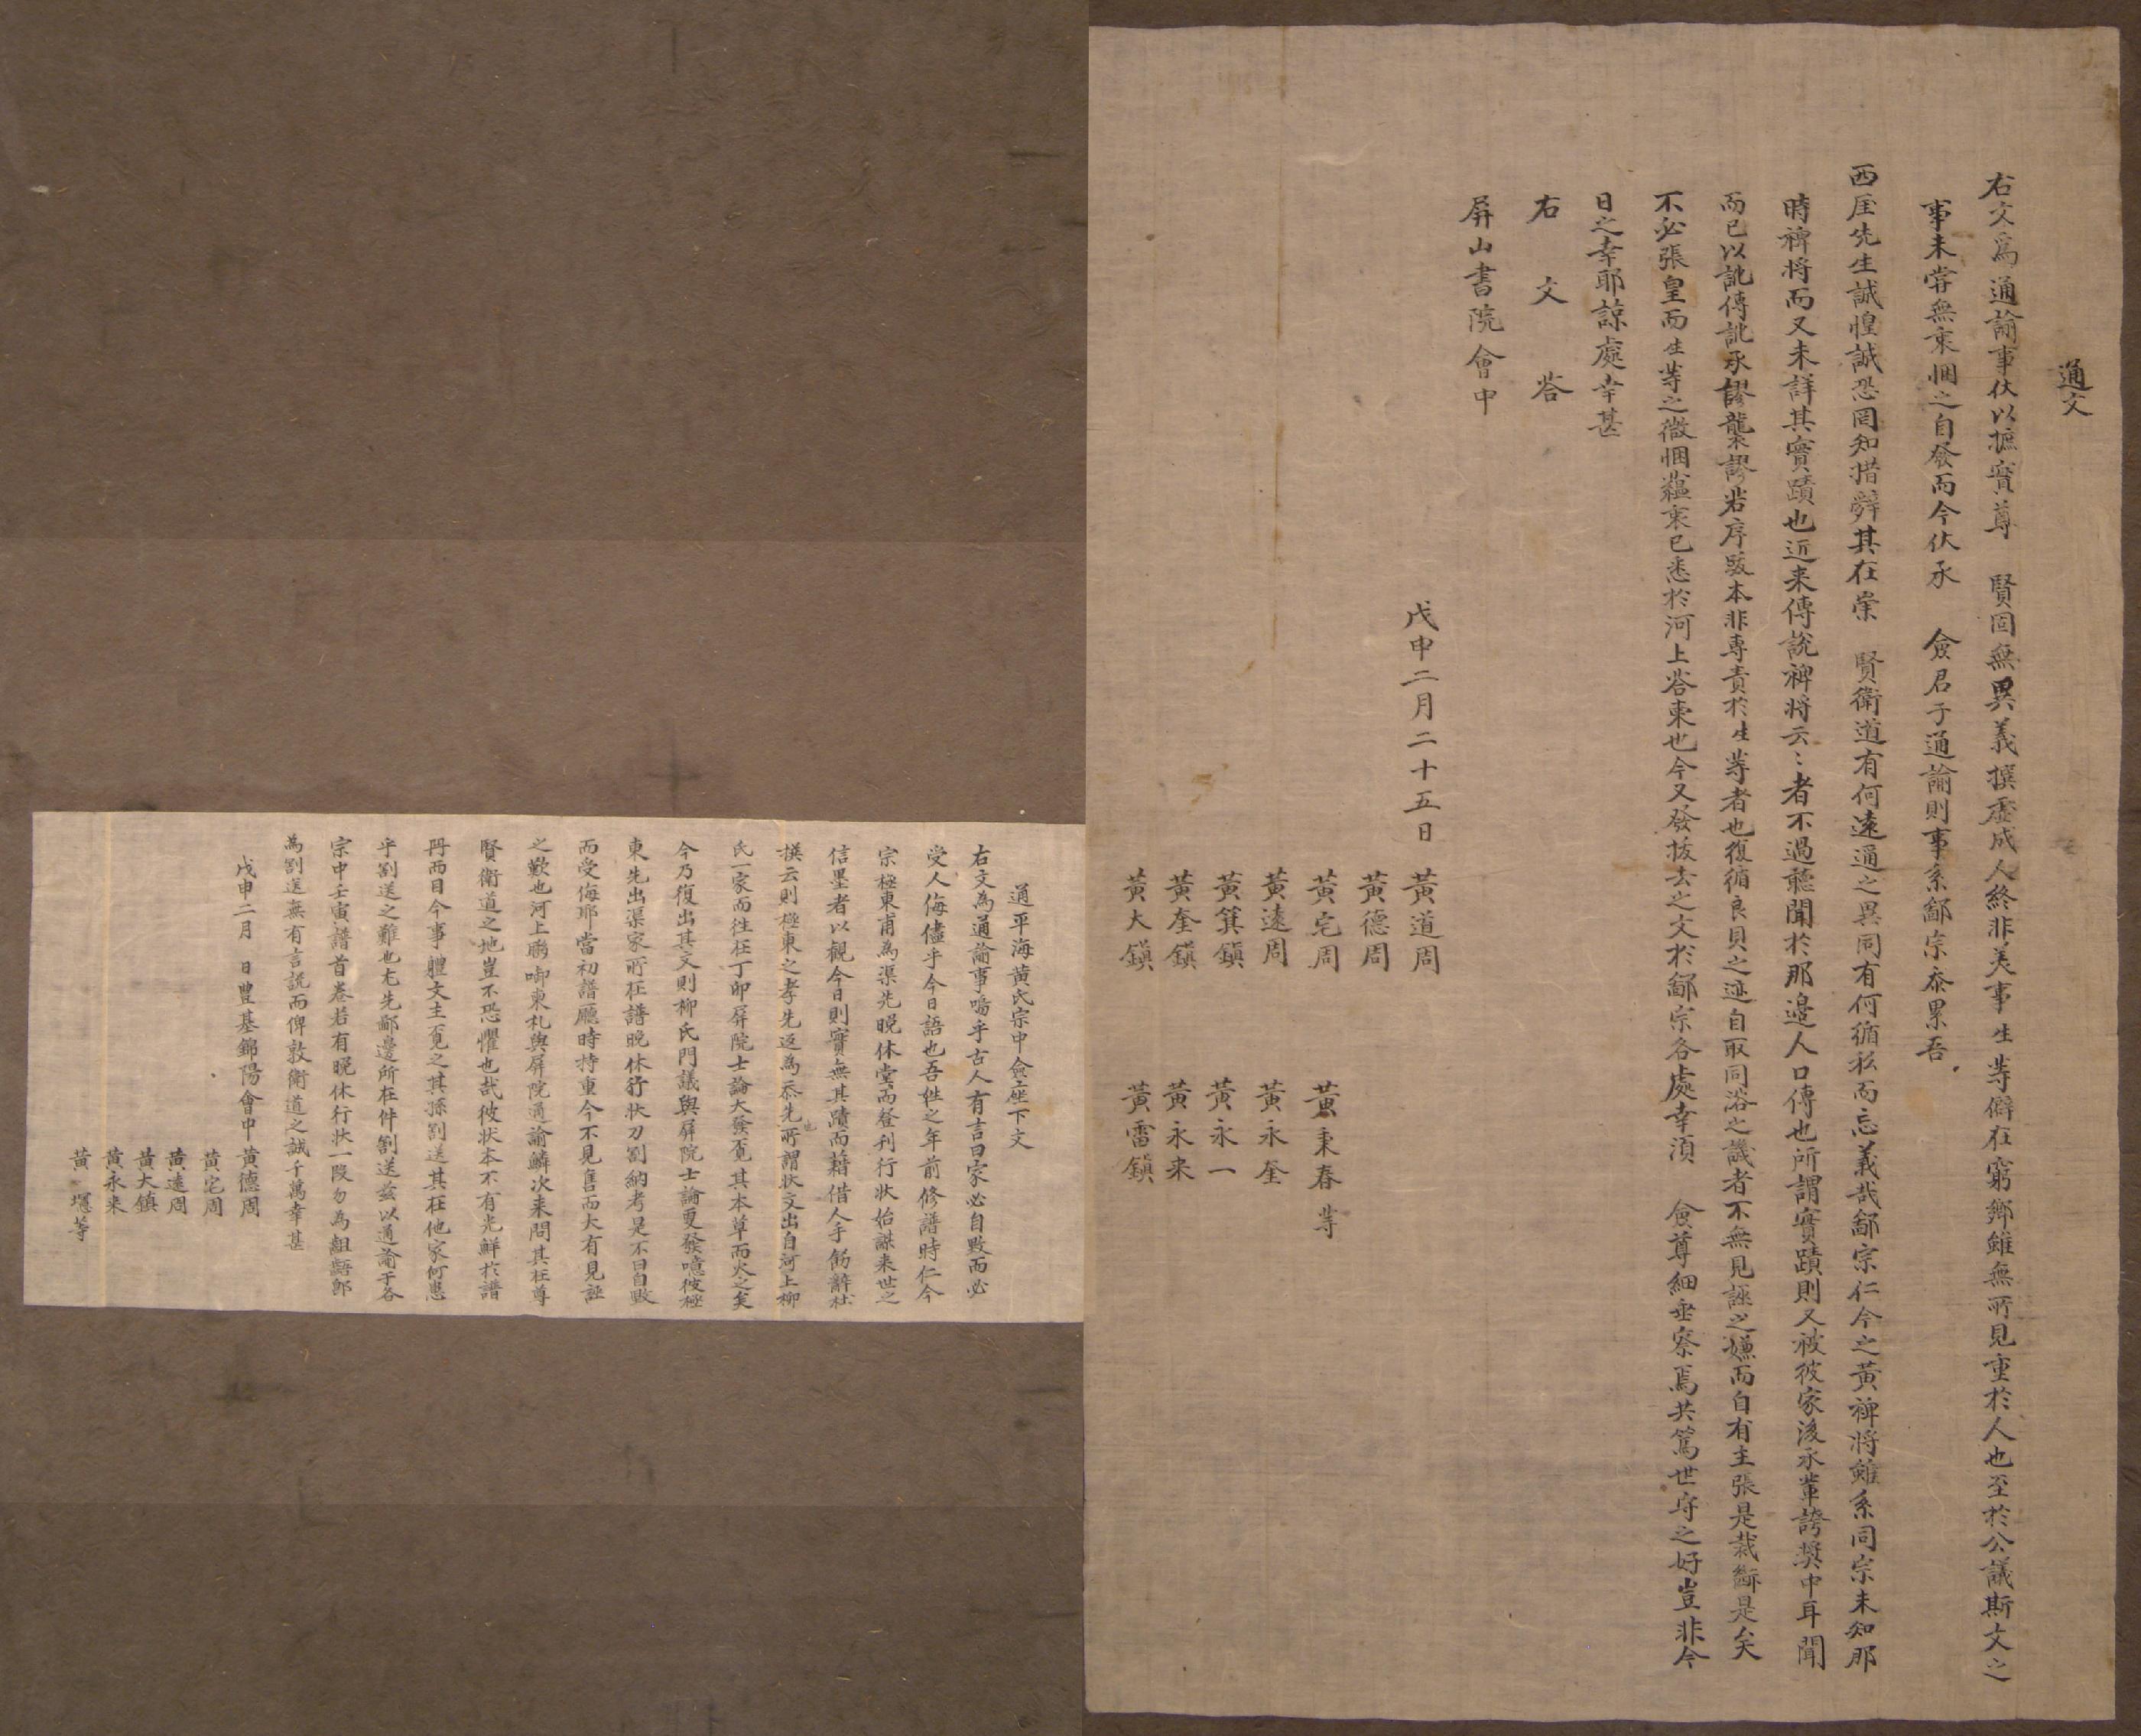 通文
右文爲通諭事伏以摭實尊 賢固無異義撰虛成人終非美事生等僻在窮鄉雖無所見重於人也至於公議斯文之
事未嘗無秉悃之自發而今伏承 僉君子通諭則事系鄙宗忝累吾
西厓先生誠惶誠恐罔知措辭其在崇 賢衛道有何遠通之異同有何循私而忘義哉鄙宗仁今之黃裨將雖系同宗未知那
時裨將而又未詳其實蹟也近來傳說裨將云〻者不過聽聞於那邊人口傳也所謂實蹟則又被彼家後承輩誇奬中耳聞
而已以訛傳訛承謬襲謬若序跋本非專責於生等者也復循良貝之迹自取同浴之譏者不無見誣之嫌而自有主張是裁斷是矣
不必張皇而生等之微悃蘊秉已悉於河上答柬也今又發拔去之文於鄙宗各處幸須 僉尊細垂察焉共篤世守之好豈非今
日之幸耶諒處幸甚
右文答
屏山書院會中
戊申二月二十五日 黃道周
黃德周
黃宅周 黃秉春 等
黃遠周 黃永奎
黃箕鎭 黃永一
黃奎鎭 黃永來
黃大鎭 黃雷鎭
通平海黃氏宗中僉座下文
右文為通諭事嗚乎古人有言曰家必自毁而必
受人侮儘乎今日語也吾姓之年前修譜時仁今
宗極東甫為渠先晚休堂而登刊行狀始謀來世之
信墨者以觀今日則實無其蹟而藉借人手飾辭杜
撰云則極東之孝先返為忝先所謂狀文出自河上柳
氏一家而往在丁卯屏院士論大發覓其本草而火之矣
今乃復出其文則柳氏門議與屏院士論更發噫彼極
東先出渠家所在譜晚休行狀刀割納考是不曰自毁
而受侮耶當初譜廳時持重今不見售而大有見誣
之歎也河上聯啣柬札與屏院通諭鱗次來問其在尊
賢衛道之地豈不恐懼也哉彼狀本不有光鮮於譜
丹而目今事軆文主覓之其孫割送其在他家何患
乎割送之難也尤先鄙邊所在件割送玆以通諭于各
宗中壬寅譜首卷若有晚休行狀一段勿為齟齬卽
為割送無有言說而俾敦衛道之誠千萬幸甚
戊申二月 日豊基錦陽會中 黃德周
黃宅周
黃遠周
黃大鎮
黃永來
黃 墀等